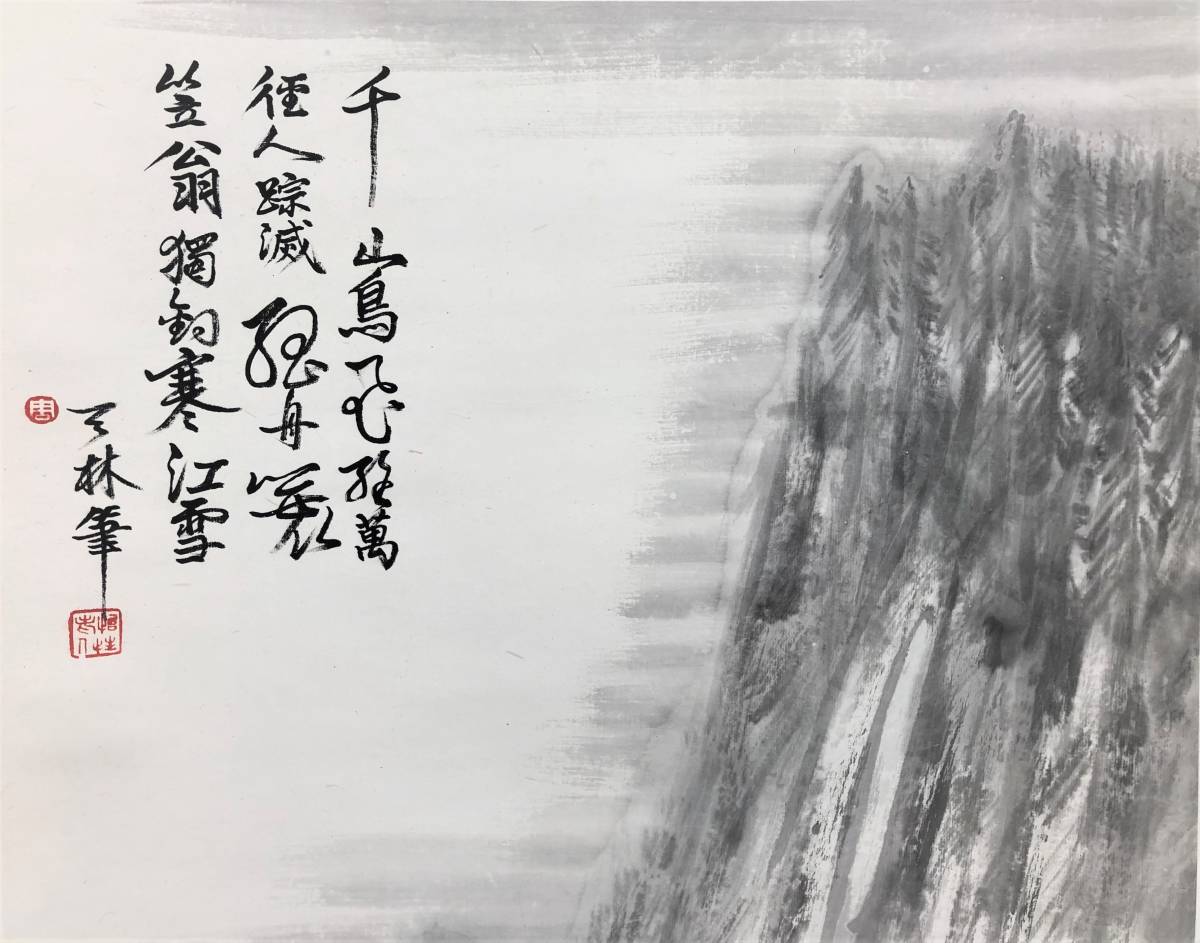 千山鳥飛絕萬
徑人踪滅孤舟簑
笠翁獨釣寒江雪
天林筆